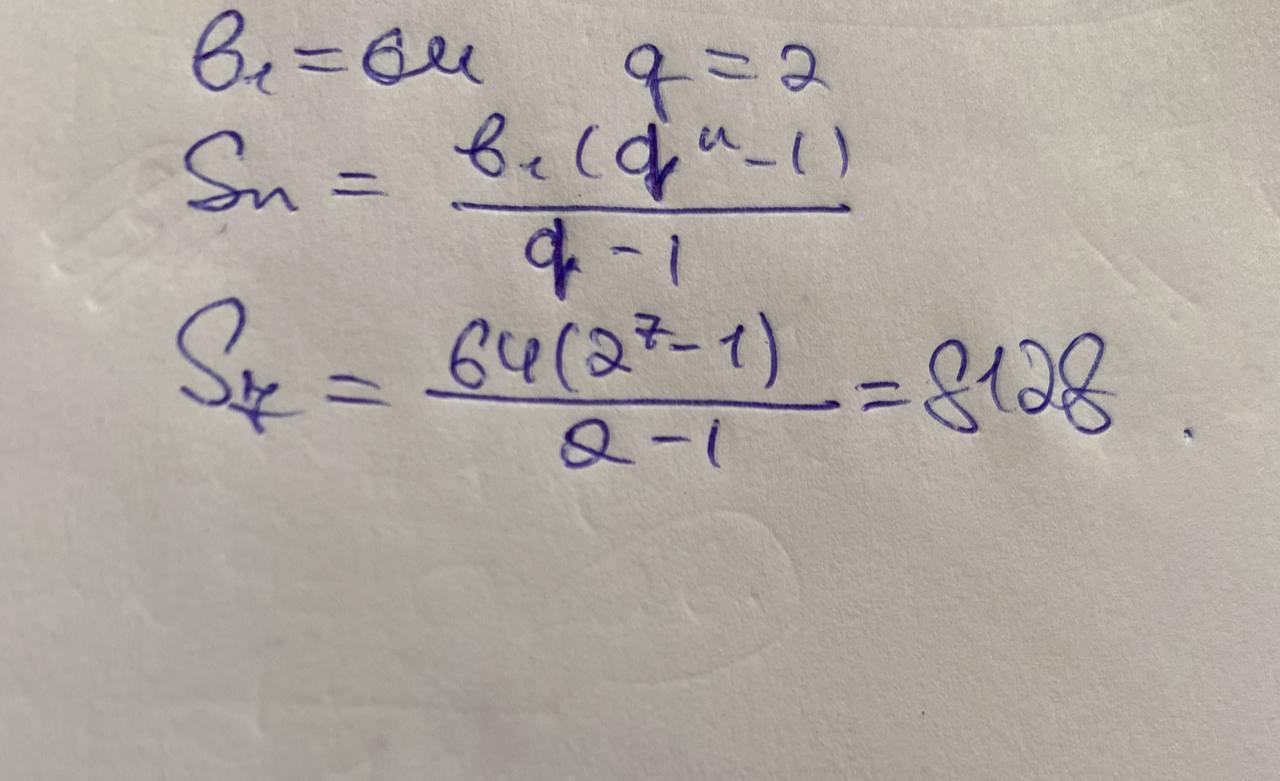 b₁ = 64 q = 2
Sn = b₁(qⁿ - 1) / q - 1
S₇ = 64(2⁷ - 1) / 2 - 1 = 8128.